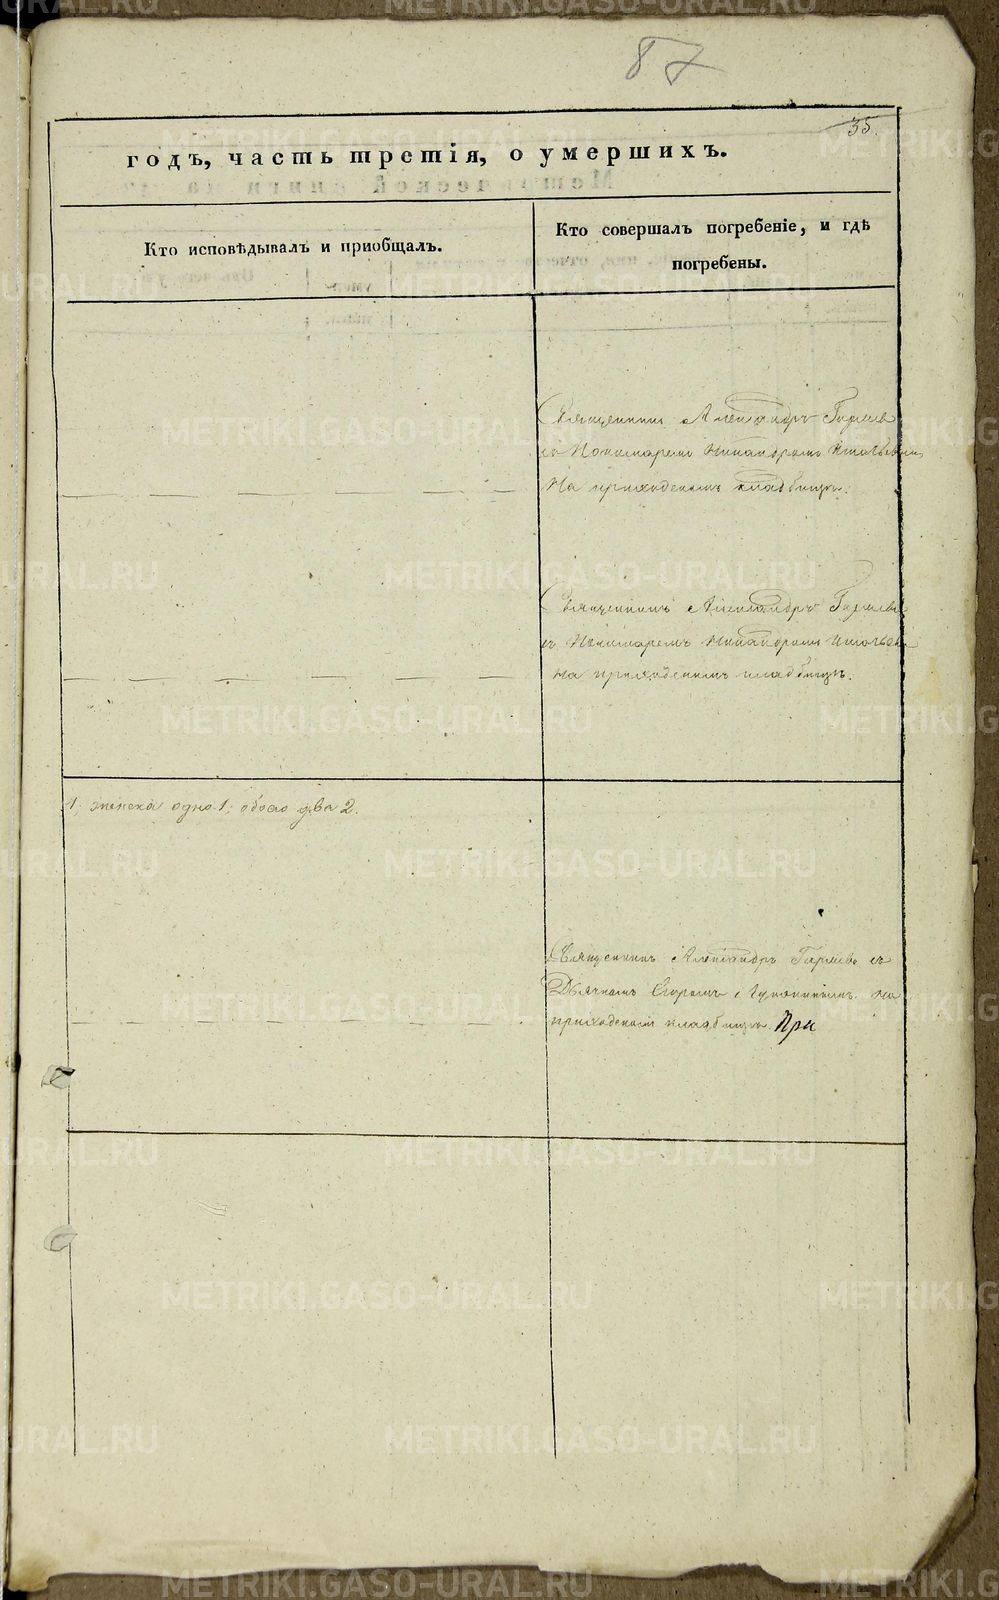 87
35.
годъ, часть третія, о умершихъ.
Кто исповѣдывалъ и приобщалъ.
Кто совершалъ погребеніе, и гдѣ
погребены.
Священникъ Александръ
съ Пономаремъ Никандромъ
На приходскомъ кладбищѣ.
Священникъ Александръ
съ Пономаремъ Никандромъ
на приходскомъ кладбищѣ.
1, женска одно 1, оболо два 2.
Священникъ Александръ съ
Дьячкомъ Егоромъ на
приходскомъ кладбищѣ. При
METRIKI.GASO-URAL.RU